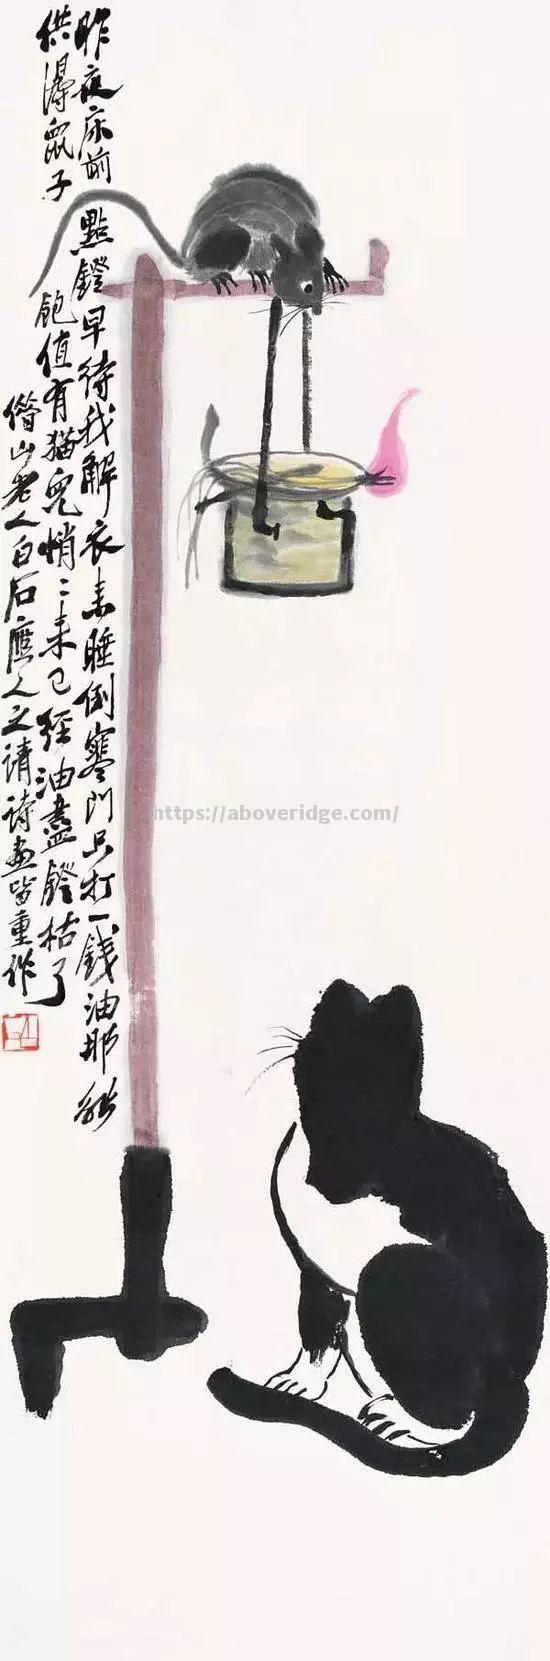 昨夜床前點鐙早待我解衣來睡倒寒門只打一錢油那能
供得鼠子飽值有猫兒悄〻來已經油盡鐙枯了
僭山老人白石應人之請詩畫皆重作
https://aboveridge.com/